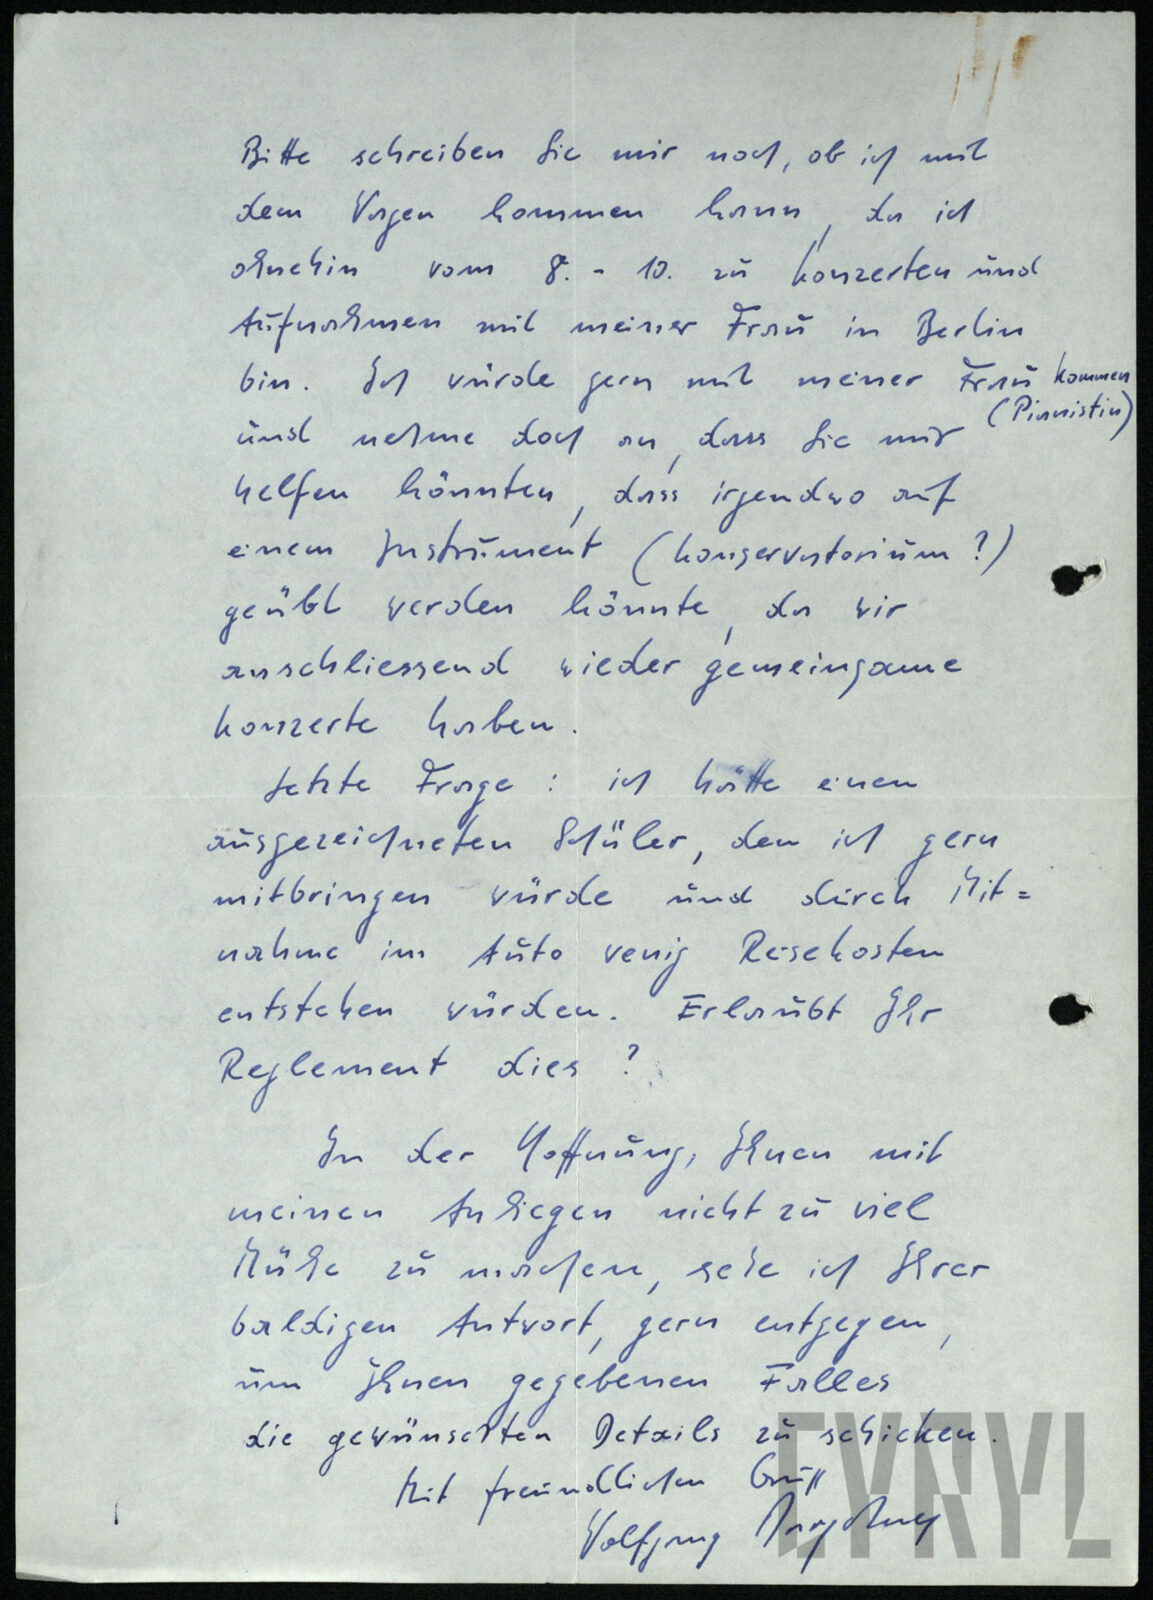 Bitte schreiben Sie mir noch, ob ich mit
dem Wagen kommen kann, da ich
ohnehin vom 8. - 10. zu Konzerten und
Aufnahmen mit meiner Frau in Berlin
bin. Ich würde gern mit meiner Frau kommen
(Pianistin)
und nehme doch an, dass Sie mir
helfen könnten, dass irgendwo auf
einem Instrument (Konservatorium?)
geübt werden könnte, da wir
anschliessend wieder gemeinsame
Konzerte haben.
Letzte Frage: ich hätte einen
ausgezeichneten Schüler, den ich gern
mitbringen würde und durch Mit=
nahme im Auto wenig Reisekosten
entstehen würden. Erlaubt Ihr
Reglement dies?
In der Hoffnung, Ihnen mit
meinen Anliegen nicht zu viel
Mühe zu machen, sehe ich Ihrer
baldigen Antwort, gern entgegen,
um Ihnen gegebenen Falles
die gewünschten Details zu schicken.
Mit freundlichen Gruß
Wolfgang